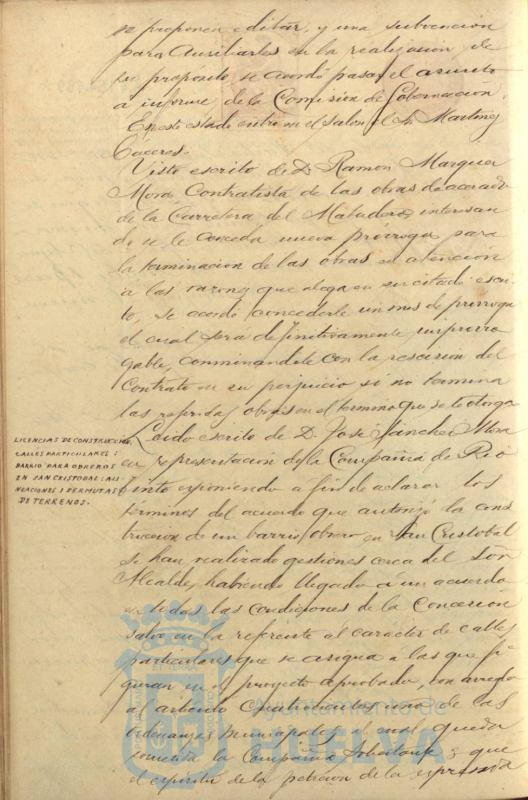 se proponen editar, y una subvención
para Auxiliarles en la realizacion de
su propósito se acordó pasar el asunto
a informe de la Comisión de Gobernacion.
En este estado entró en el Salon el Sr. Martinez
Cáceres.
Visto escrito de D. Ramon Marquez
Mora, Contratista de las obras de acerado
de la Carretera del Matadero, interesan
do se le conceda nueva prórroga para
la terminacion de las obras en atención
a las razones que alega en su citado escri
to, se acordó concederle un mes de prórroga
el cual será definitivamente improrro
gable, conminandole con la rescision del
Contrato en su perjuicio si no termina
las referidas obras en el termino que se le otorga
LICENCIAS DE CONSTRUCCION
CALLES PARTICULARES:
BARRIO PARA OBREROS
EN SAN CRISTOBAL: ALI
NEACIONES I PERMUTAS
DE TERRENOS.
Leido escrito de D. José Sánchez Mora
en representación de la Compañia de Rio
Tinto exponiendo a fin de aclarar los
terminos del acuerdo que autorizó la cons
truccion de un barrio obrero en San Cristobal
se han realizado gestiones cerca del Señor
Alcalde, habiendo llegado a un acuerdo
en todas las condiciones de la Concesión
salvo en la referente al carácter de calles
particulares que se asigna a las que fi
guran en el proyecto aprobado, con arreglo
al articulo Cuatrocientos uno de las
Ordenanzas Municipales al cual queda
sometida la Compañia Solicitante y que
el espiritu de la peticion de la expresada
Ayuntamiento de
HUELVA